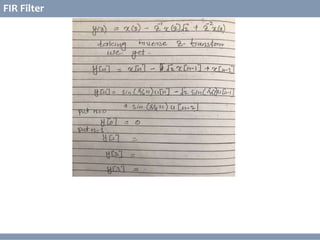 FIR Filter
y(z) = x(z) - z⁻¹x(z)√2 + z⁻²x(z)
taking inverse z-transform
we get -
y[n] = x[n] - √2 x[n-1] + x[n-2]
y[n] = sin( n)u[n] - √2 sin( )u[n-1]
+ sin( n) u[n-2]
put n=0
y[0] = 0
put n=1
y[1] =
y[2] =
y[3] =